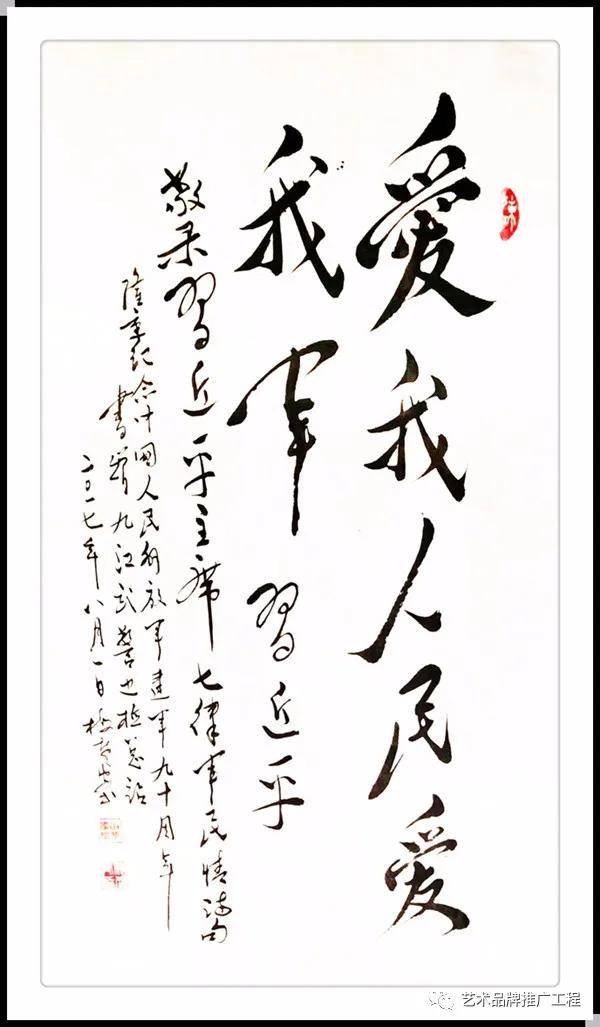 愛我人民愛
我軍 習近平
敬录習近平主席七律軍民情诗句
隆重纪念中國人民解放军建军九十周年
書赠九江武警边检总站
二〇一七年八月一日
艺术品牌推广工程